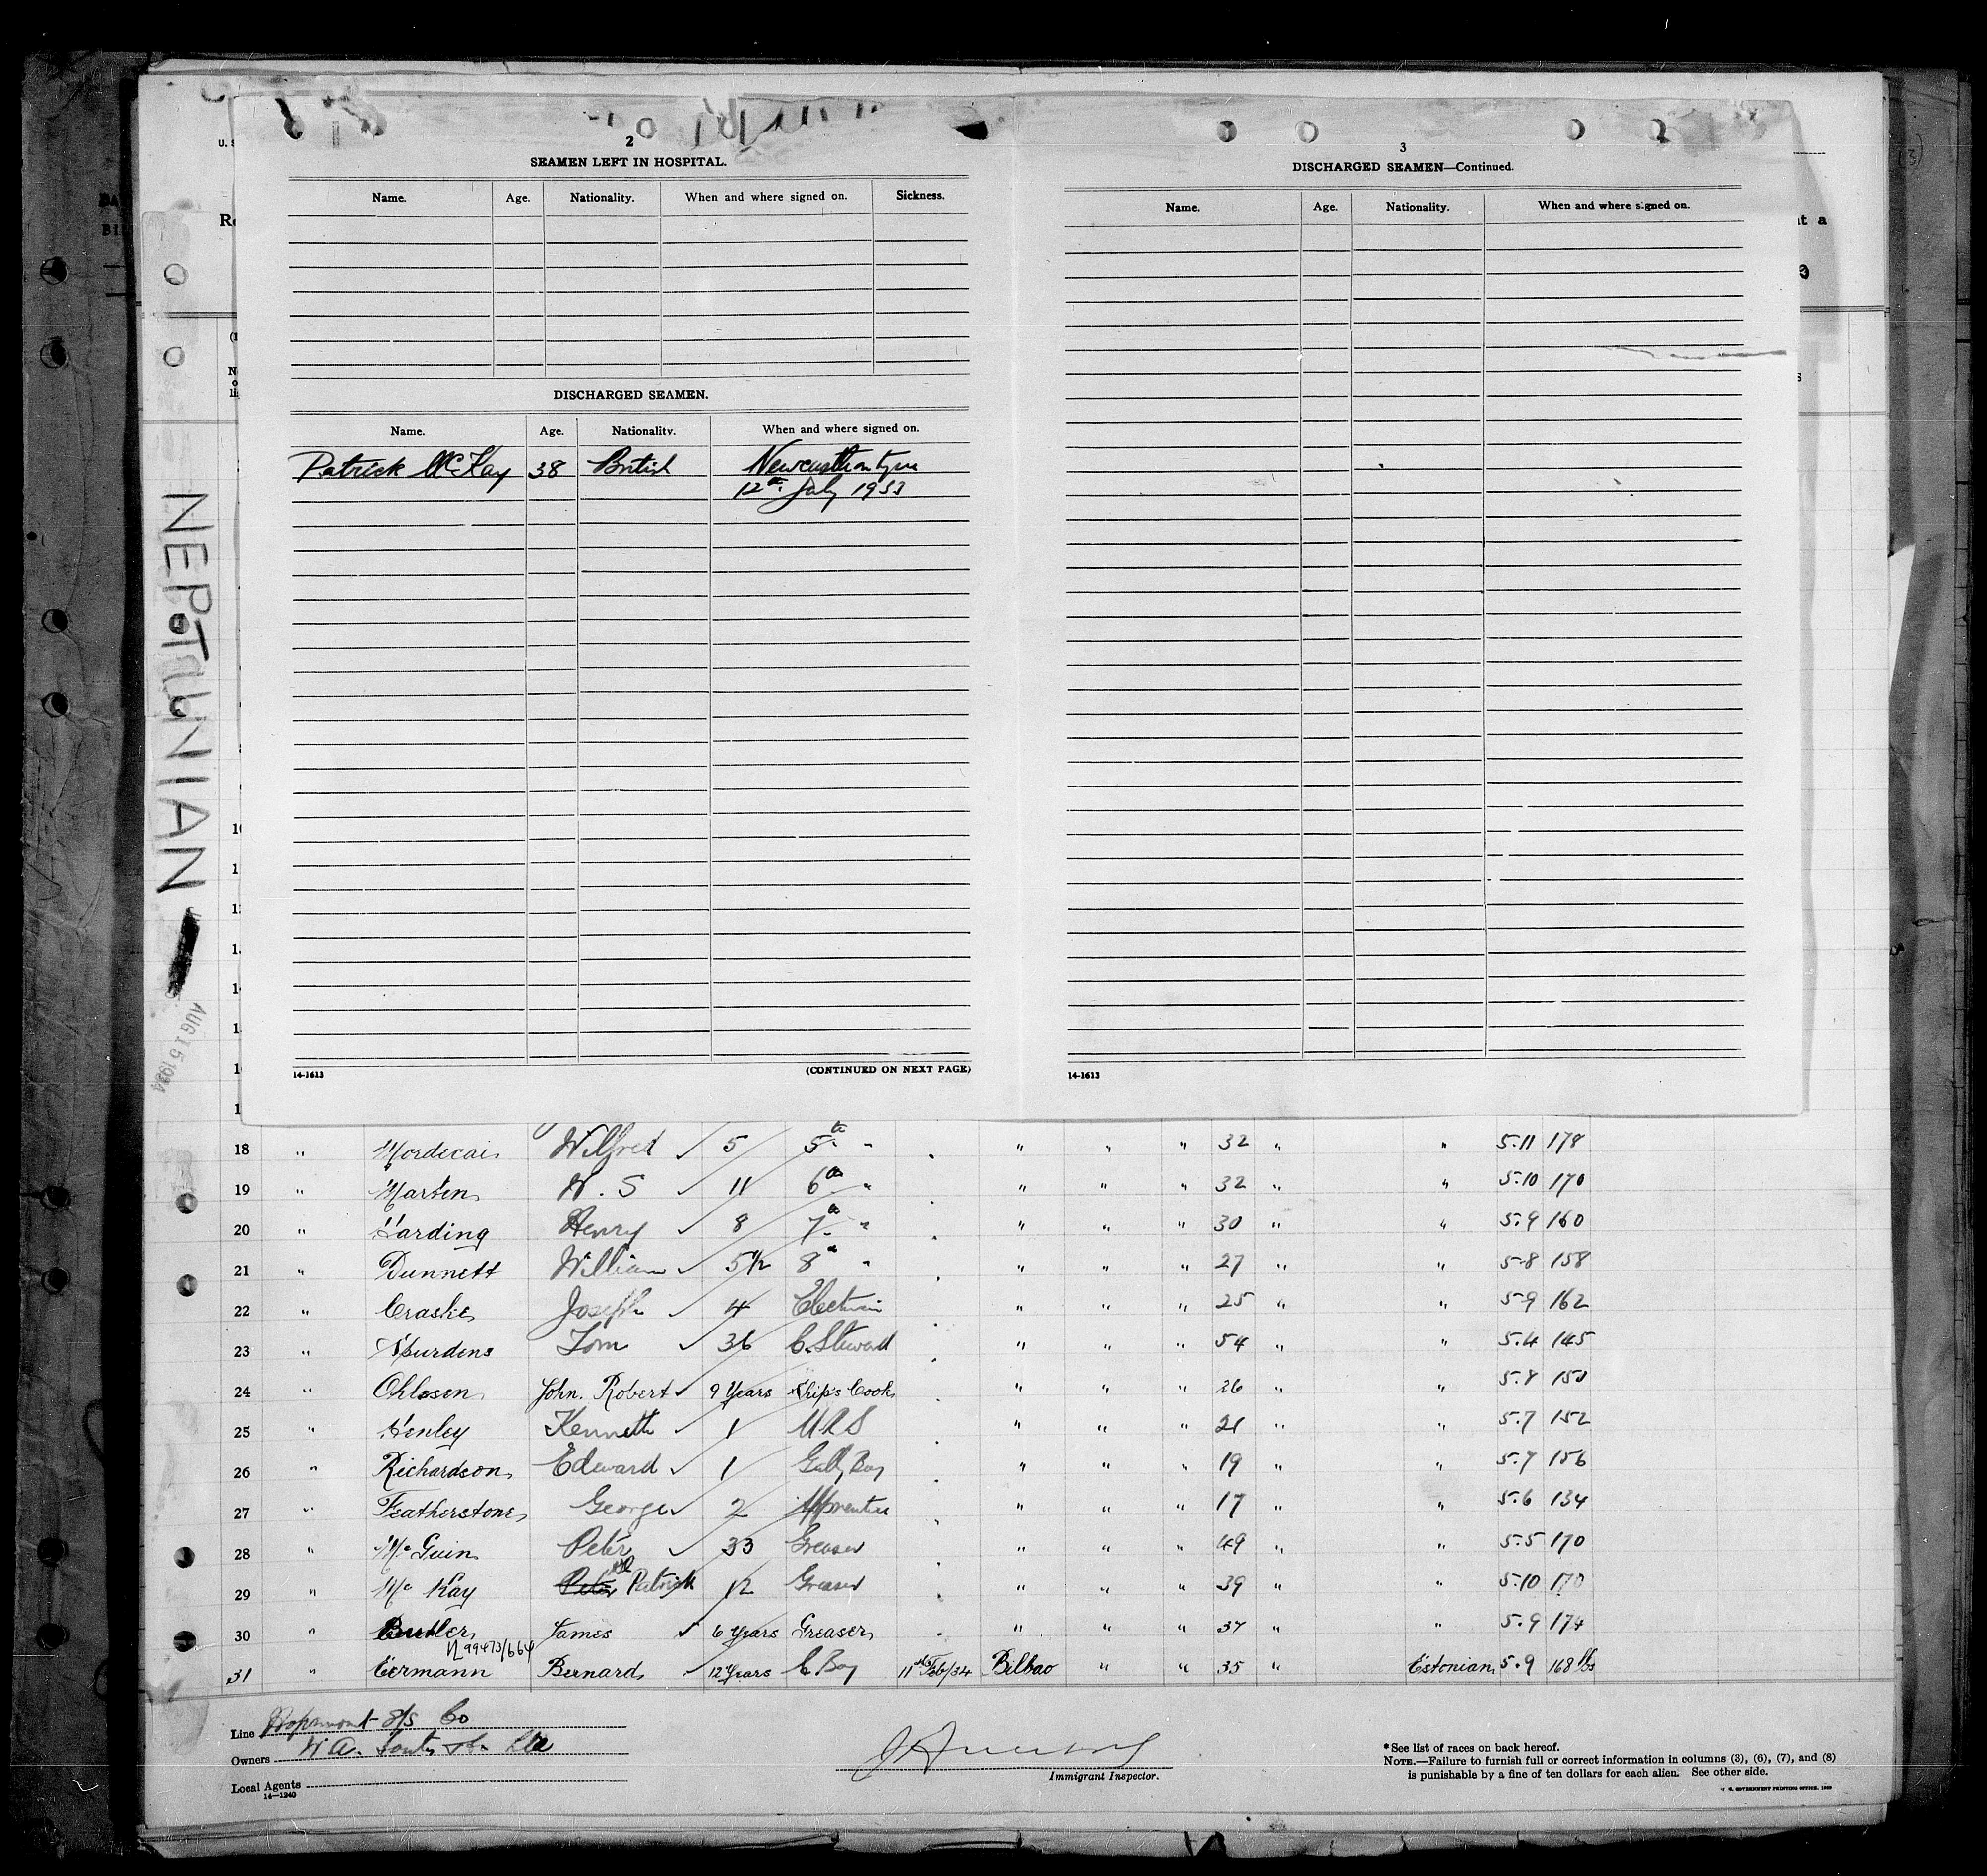 2
SEAMEN LEFT IN HOSPITAL.
Name. Age. Nationality. When and where signed on. Sickness.
DISCHARGED SEAMEN.
Name. Age. Nationality. When and where signed on.
Patrick McKay 38 British Newcastle on Tyne
12th July 1933
14-1613 (CONTINUED ON NEXT PAGE)
3
DISCHARGED SEAMEN—Continued.
Name. Age. Nationality. When and where signed on.
14-1613
NEPTUNIAN
AUG 15 1934
18 " Mordecai Wilfred ✓ 5 5th " " " " 32 " " 5.11 178
19 " Marten W. S ✓ 11 6th " " " " 32 " " 5.10 170
20 " Harding Henry ✓ 8 7th " " " " 30 " " 5.9 160
21 " Dunnett William ✓ 5 1/2 8th " " " " 27 " " 5-8 158
22 " Craske Joseph ✓ 4 " " " 25 " " 5-9 162
23 " Spurdens Tom ✓ 36 C. Steward " " " 54 " " 5.4 145
24 " Ohlosen John. Robert ✓ 9 Years Ship's Cook " " " 26 " " 5.8 150
25 " Henley Kenneth ✓ 1 " " " 21 " " 5.7 152
26 " Richardson Edward ✓ 1 Gally Boy " " " 19 " " 5.7 156
27 " Featherstone George ✓ 2 Apprentice " " " 17 " " 5.6 134
28 " Mc Guin Peter ✓ 33 Greaser " " " 49 " " 5.5 170
29 " Mc Kay Peter Patrick 12 Greaser " " " 39 " " 5.10 170
30 " Butler James ✓ 6 Years Greaser " " " 37 " " 5.9 174
99473/664
31 " Eermann Bernard ✓ 12 Years C. Boy 11th Feb/34 Bilbao " " 35 " Estonian 5.9 168 lbs
Line S/S Co
Owners W.A.
Local Agents
14—1240
Immigrant Inspector.
* See list of races on back hereof.
NOTE.—Failure to furnish full or correct information in columns (3), (6), (7), and (8)
is punishable by a fine of ten dollars for each alien. See other side.